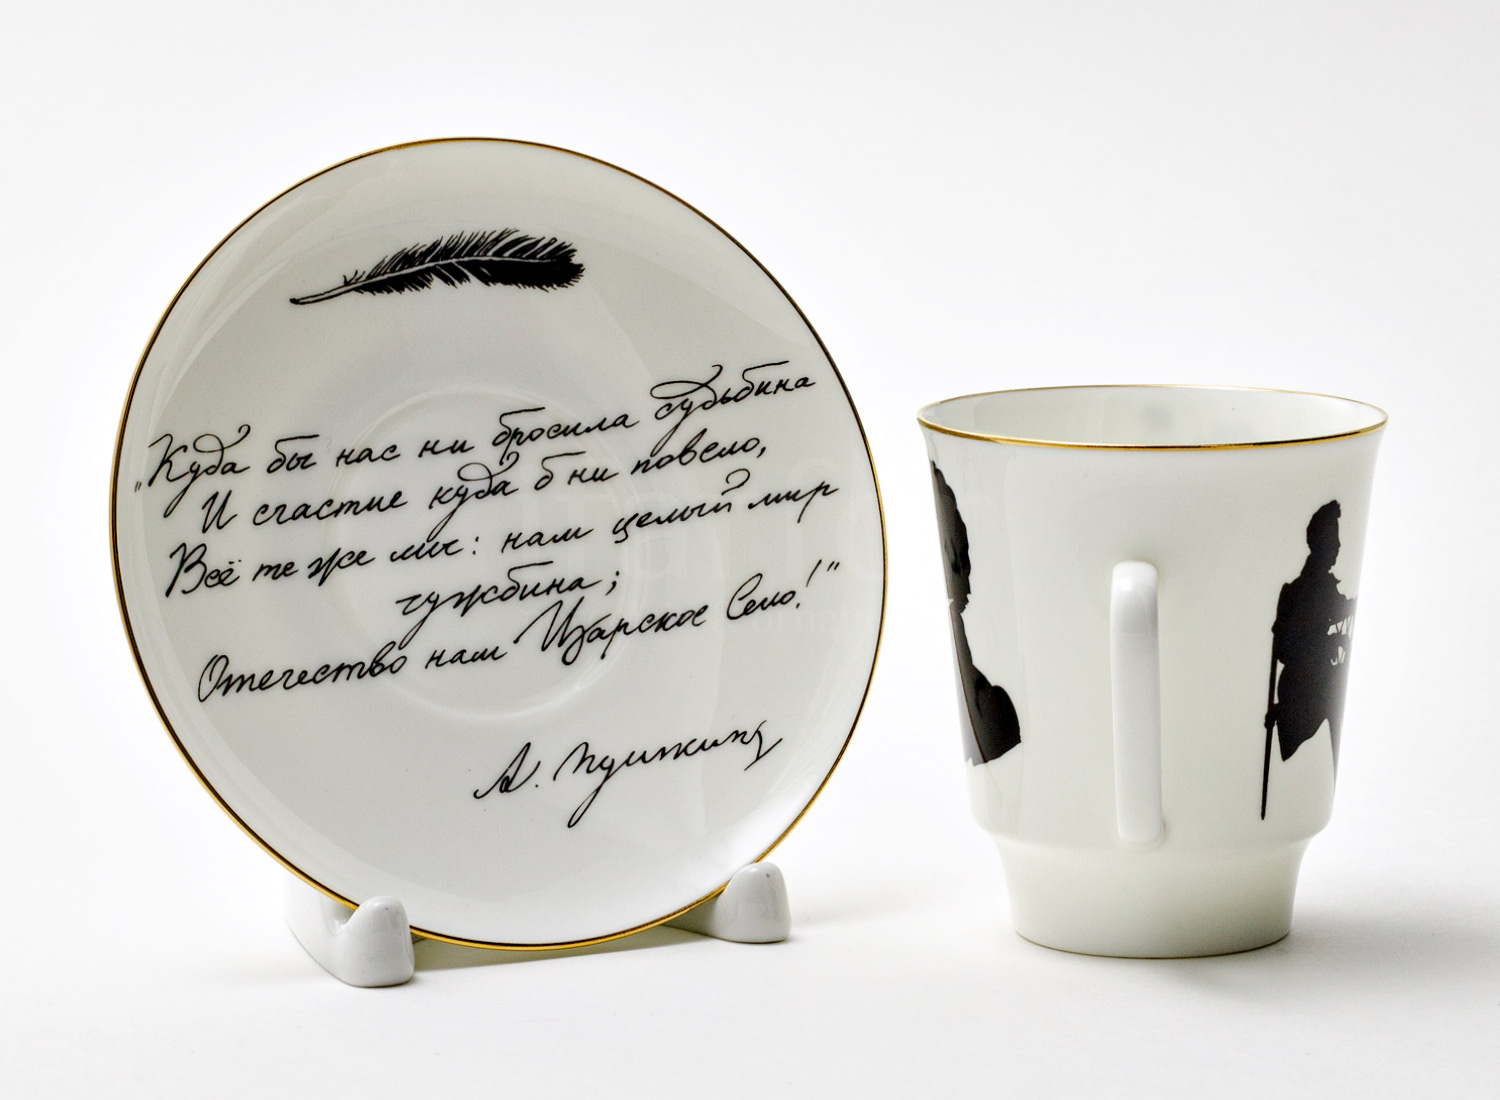 „Куда бы нас ни бросила судьбина
И счастие куда б ни повело,
Всё те же мы: нам целый мир
чужбина;
Отечество нам Царское Село!"
А. Пушкинъ